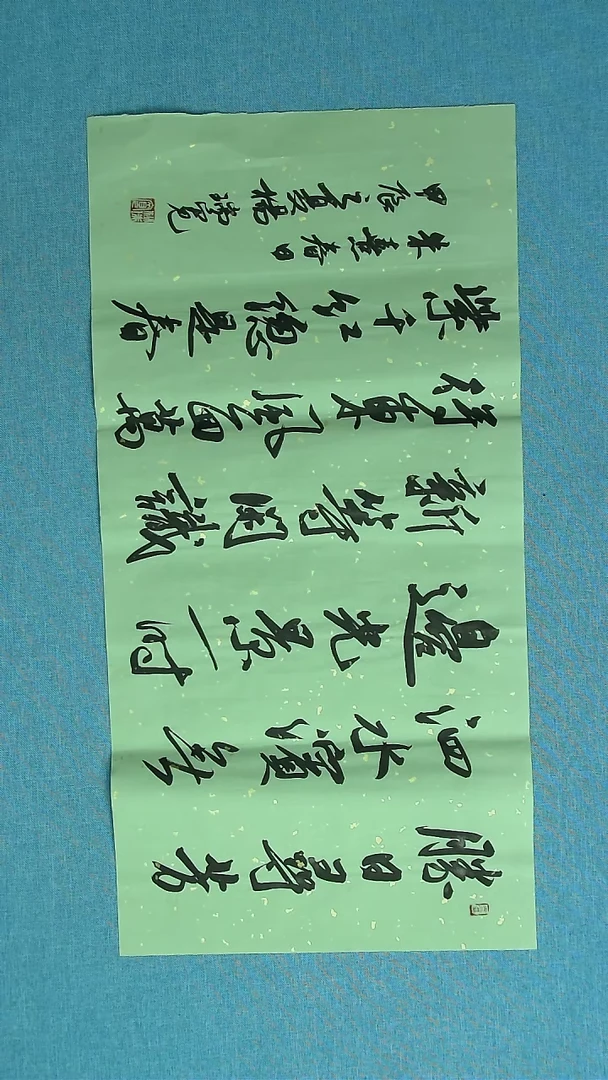 勝日尋芳
泗水濱無
邊光景一时
新等閑識
得東風面萬
紫千红總是春
朱熹春日
甲辰之夏楊